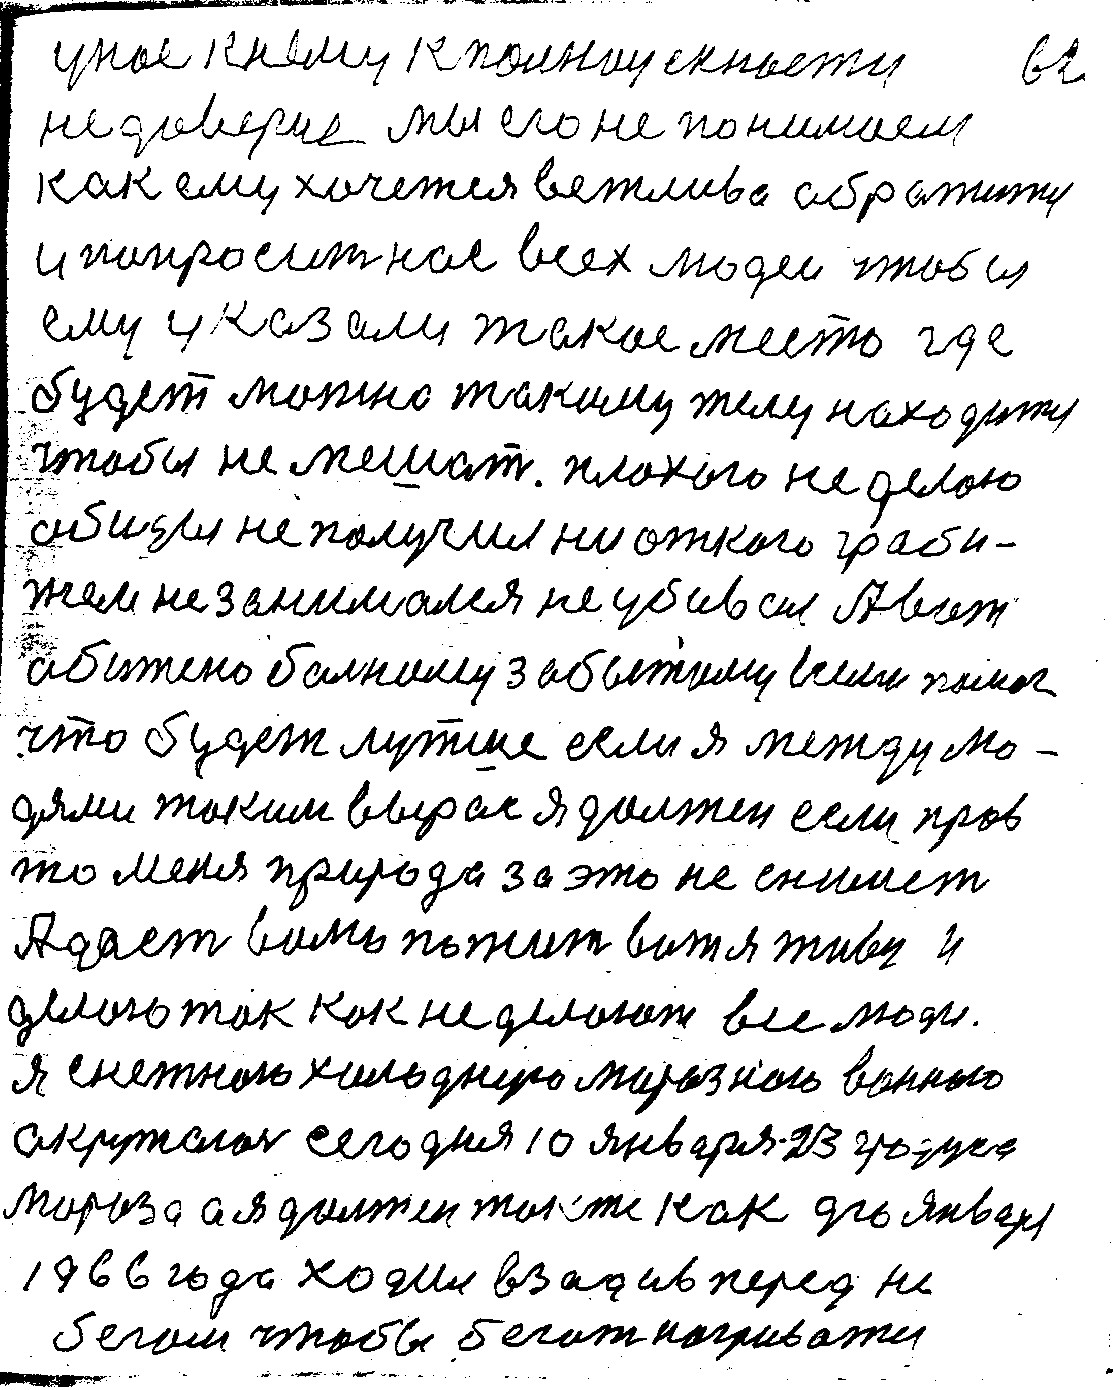 у нас к нему к полноц скности 62
не доверие мы его не понимаем
как ему хочется ветлива обротити
и попросит нас всех людеи чтобы
ему указали такое место где
будет можно такому телу находити
чтобы не мешат. плохого не делаю
обиды не получил ни откого граби-
жем не занимался не убивал А вот
обижено болному забытому всем помог
что будет лутше если я между лю-
дями таким вырас я должен если прав
то меня природа за это не снимет
А дает вамь пожит вот я живу и
делаю так как не делают все люди.
я снежною холодную морозною ванною
окружался сегодня 10 января 23 градуса
мороза а я должен также как дго января
1966 года ходил взад ив перед не
бегом чтобы бегат нагривати